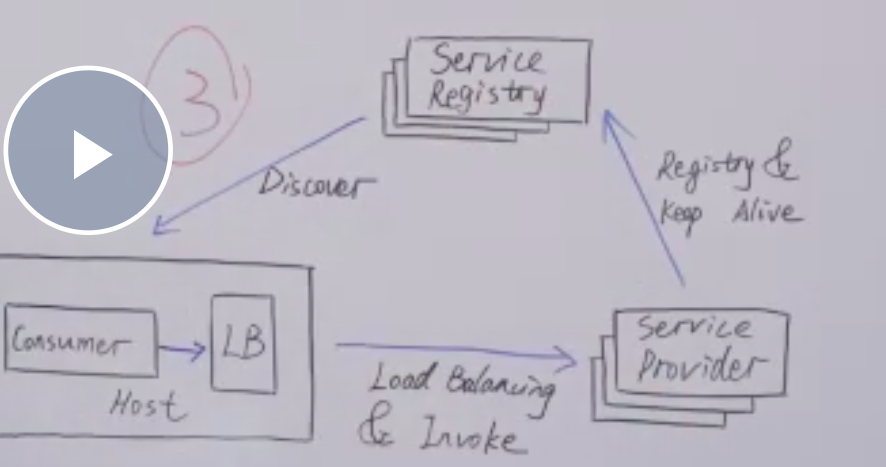 3
Service
Registry
Discover
Registry &
Keep Alive
Consumer
LB
Host
Load Balancing
& Invoke
Service
Provider